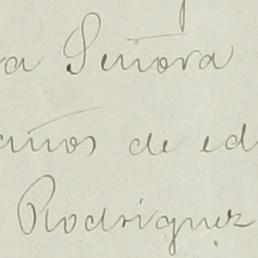 a Señora
años de ed
Rodriguez